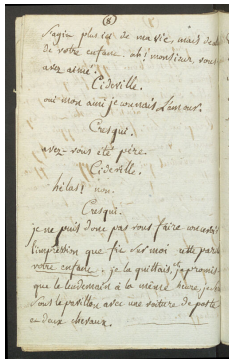 (8)
s'agit plus ici de ma vie, mais de
de votre enfant. ah! monsieur, vous
avez aimé.
Cideville.
oui mon ami je connais l'amour.
Cresqui.
avez-vous été père.
Cideville.
hélas! non.
Cresqui.
je ne puis donc pas vous faire
l'impression que fit sur moi cette
votre enfant. je la quittais, je promis
que le lendemain à la même heure,
sous le pavillon avec une voiture de poste
et deux chevaux.